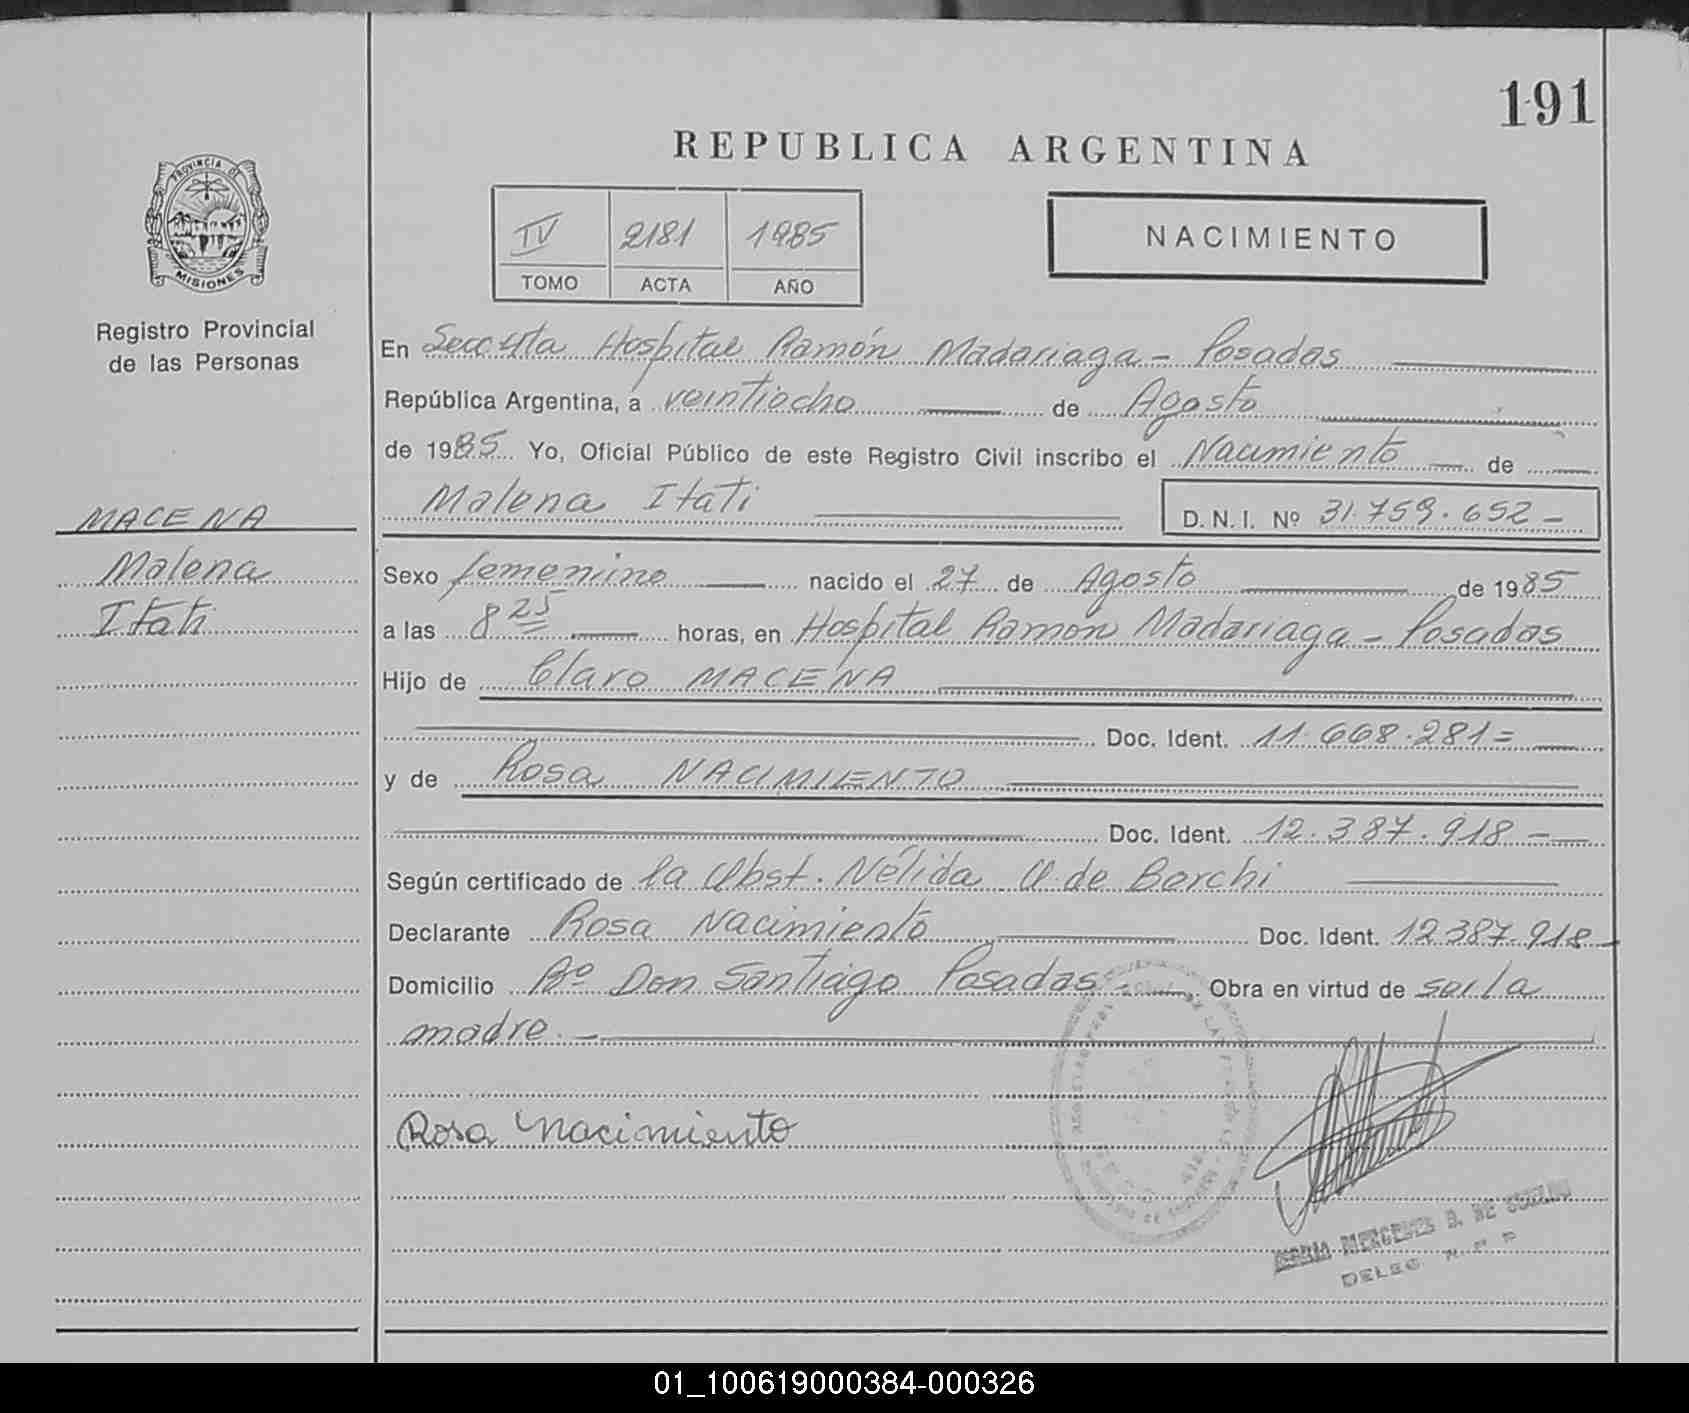 191
REPUBLICA ARGENTINA
PROVINCIA DE
MISIONES
Registro Provincial
de las Personas
IV 2181 1985
TOMO ACTA AÑO
NACIMIENTO
En Secc 4ta Hospital Ramón Madariaga - Posadas
República Argentina, a veintiocho de Agosto
de 1985 Yo, Oficial Público de este Registro Civil inscribo el Nacimiento de
Malena Itati D. N. I. Nº 31.759.652 -
MACENA
Malena
Itati
Sexo femenino nacido el 27 de Agosto de 1985
a las 8 25 horas, en Hospital Ramon Madariaga - Posadas
Hijo de Claro MACENA
Doc. Ident. 11.668.281 =
y de Rosa NACIMIENTO
Doc. Ident. 12.387.918 -
Según certificado de la Obst. Nélida de Berchi
Declarante Rosa Nacimiento Doc. Ident. 12.387.918 -
Domicilio Bº Don Santiago Posadas - Obra en virtud de ser la
madre. -
Rosa Nacimiento
MERCEDES B. DE
DELEG. R. P. P
01_100619000384-000326